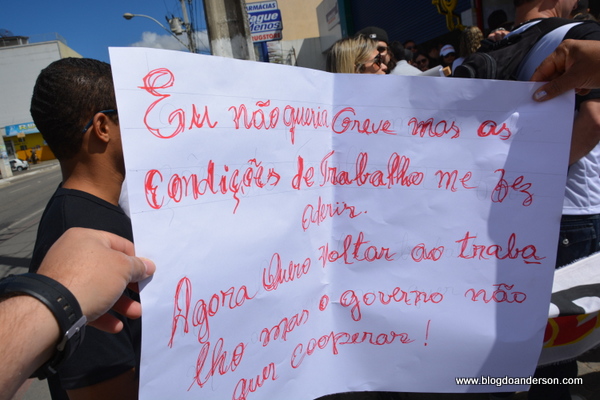 FARMÁCIAS
Pague
Menos
Eu não queria Greve mas as
Condições de Trabalho me fez
aderir.
Agora Quero voltar ao traba
lho mas o governo não
quer cooperar!
www.blogdoanderson.com